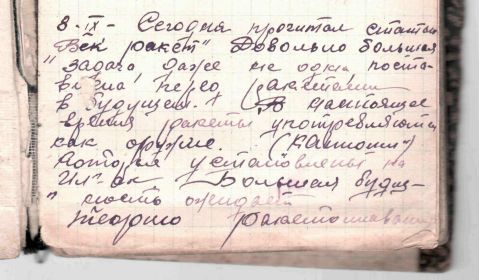 8-IX- Сегодня прочитал статью
"Век ракет" Довольно большая
задача даже не одна поста-
влена перед ракетами
в будущем. В настоящее
время ракеты употребляются
как оружие. ("Катюши")
которые установлены на
Ил-ах Большая будущ-
ность ожидает
теорию ракетоплавания